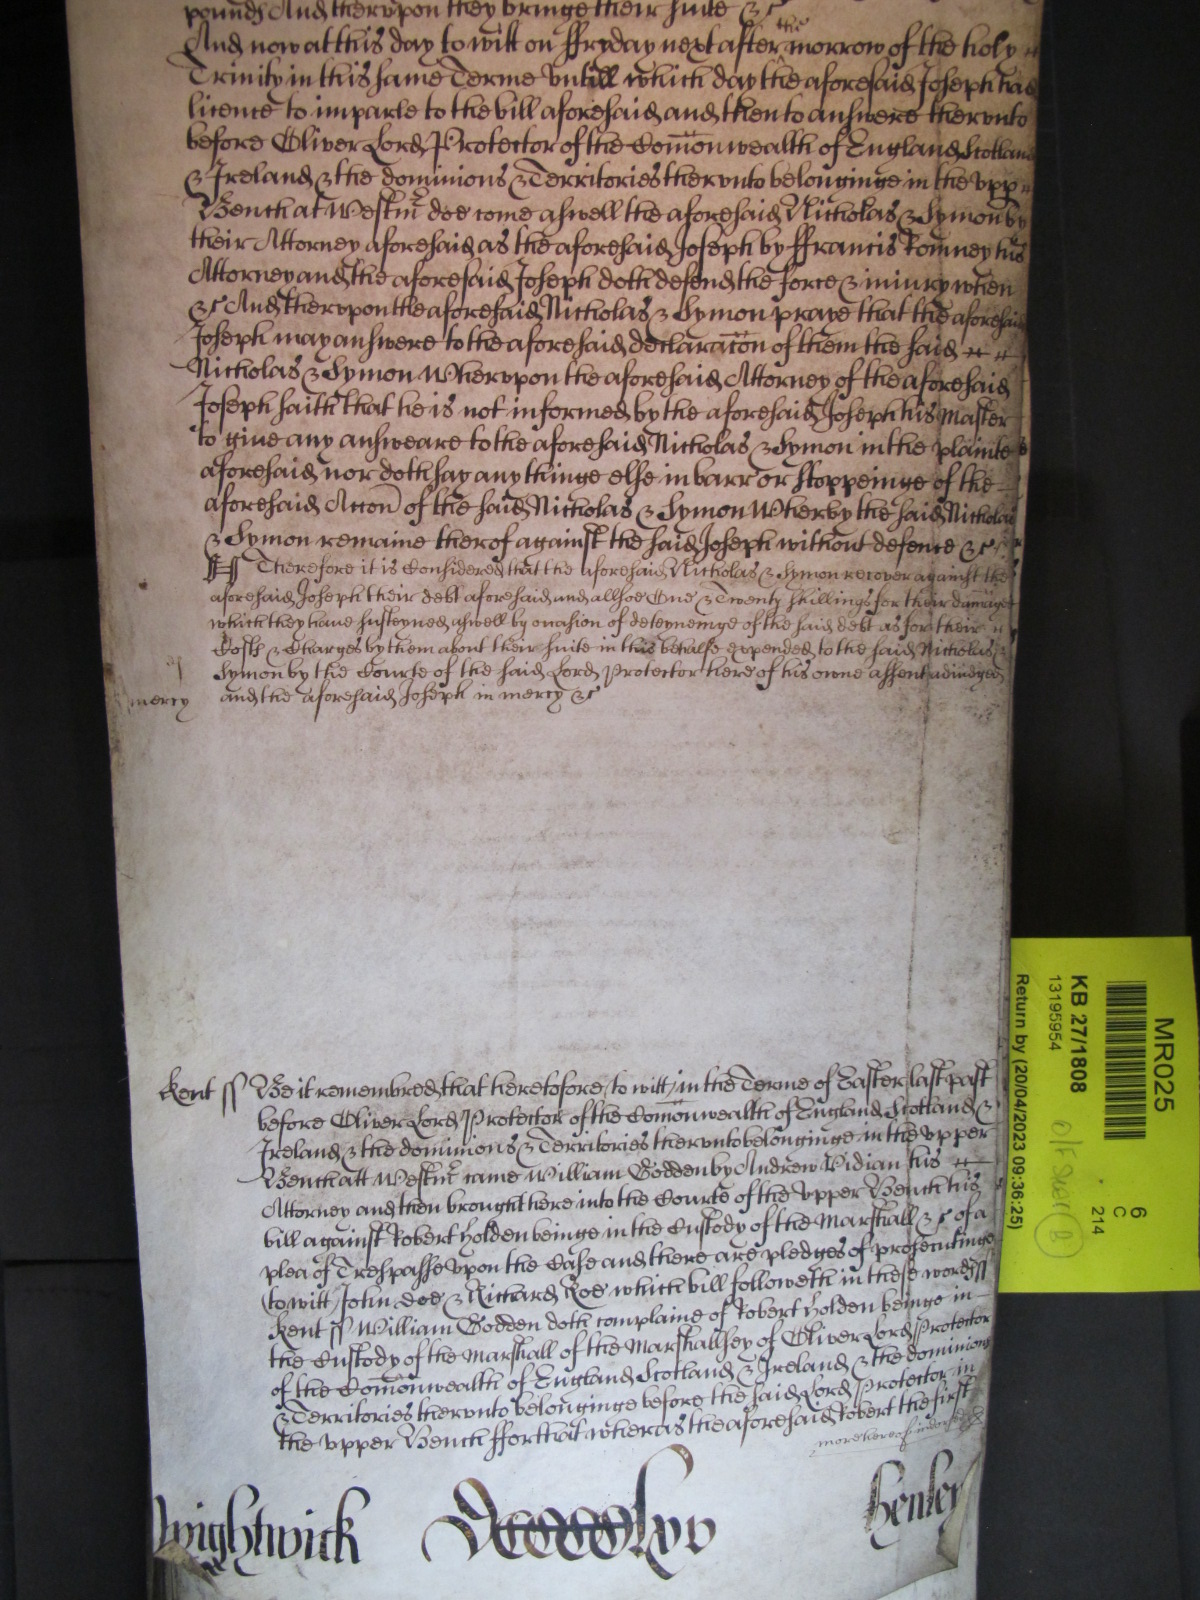 pounds And therupon they bringe their suite &c
And now at this day to witt on ffryday next after the morrow of the holy
Trinity in this same Terme untill which day the aforesaid Joseph had
licence to imparle to the bill aforesaid and then to answere therunto
before Oliver Lord Protector of the Com̄onwealth of England Scotland
& Ireland & the dominions & Territories therunto belonginge in the upp
Bench at Westmr doe come aswell the aforesaid Nicholas & Symon by
their Attorney aforesaid as the aforesaid Joseph by ffrancis Romney his
Attorney and the aforesaid Joseph doth defend the force & iniury when
&c And therupon the aforesaid Nicholas & Symon praye that the aforesaid
Joseph may answere to the aforesaid declarac̄on of them the said
Nicholas & Symon Wherupon the aforesaid Attorney of the aforesaid
Joseph saith that he is not informed by the aforesaid Joseph his Master
to give any answeare to the aforesaid Nicholas & Symon in the plainte
aforesaid nor doth say any thinge else in barr or stoppeinge of the
aforesaid Acc̄on of the said Nicholas & Symon Wherby the said Nicholas
& Symon remaine therof against the said Joseph without defence &c
Therefore it is Considered that the aforesaid Nicholas & Symon recover against the
aforesaid Joseph their debt aforesaid and allsoe One & Twenty shillings for their damages
which they have susteyned aswell by occasion of deteyneinge of the said debt as for their
Costs & Charges by them about their suite in this behalfe expended to the said Nicholas &
Symon by the Courte of the said Lord Protector here of his owne assent adiudged
mercy and the aforesaid Joseph in mercy &c
Kent ss Be it remembred that heretofore to witt in the Terme of Easter last past
before Oliver Lord Protector of the Com̄onwealth of England Scotland &
Ireland & the dominions & Territories therunto belonginge in the upper
Bench att Westmr came William Godden by Andrew Vidian his
Attorney and then brought here into the Courte of the upper Bench his
bill against Robert Holden beinge in the Custody of the Marshall &c of a
plea of Trespasse upon the Case and there are pledges of prosecutinge
to witt John Doe & Richard Roe which bill followeth in these words ss
Kent ss William Godden doth complaine of Robert Holden beinge in
the Custody of the Marshall of the Marshallsey of Oliver Lord Protector
of the Com̄onwealth of England Scotland & Ireland & the dominions
& Territories therunto belonginge before the said Lord Protector in
the upper Bench ffor that wheras the aforesaid Robert the first
more hereof
Wightwick DCCCClxv Henley
MR025
6
C
214
KB 27/1808
13195954
Return by (20/04/2023 09:36:25)